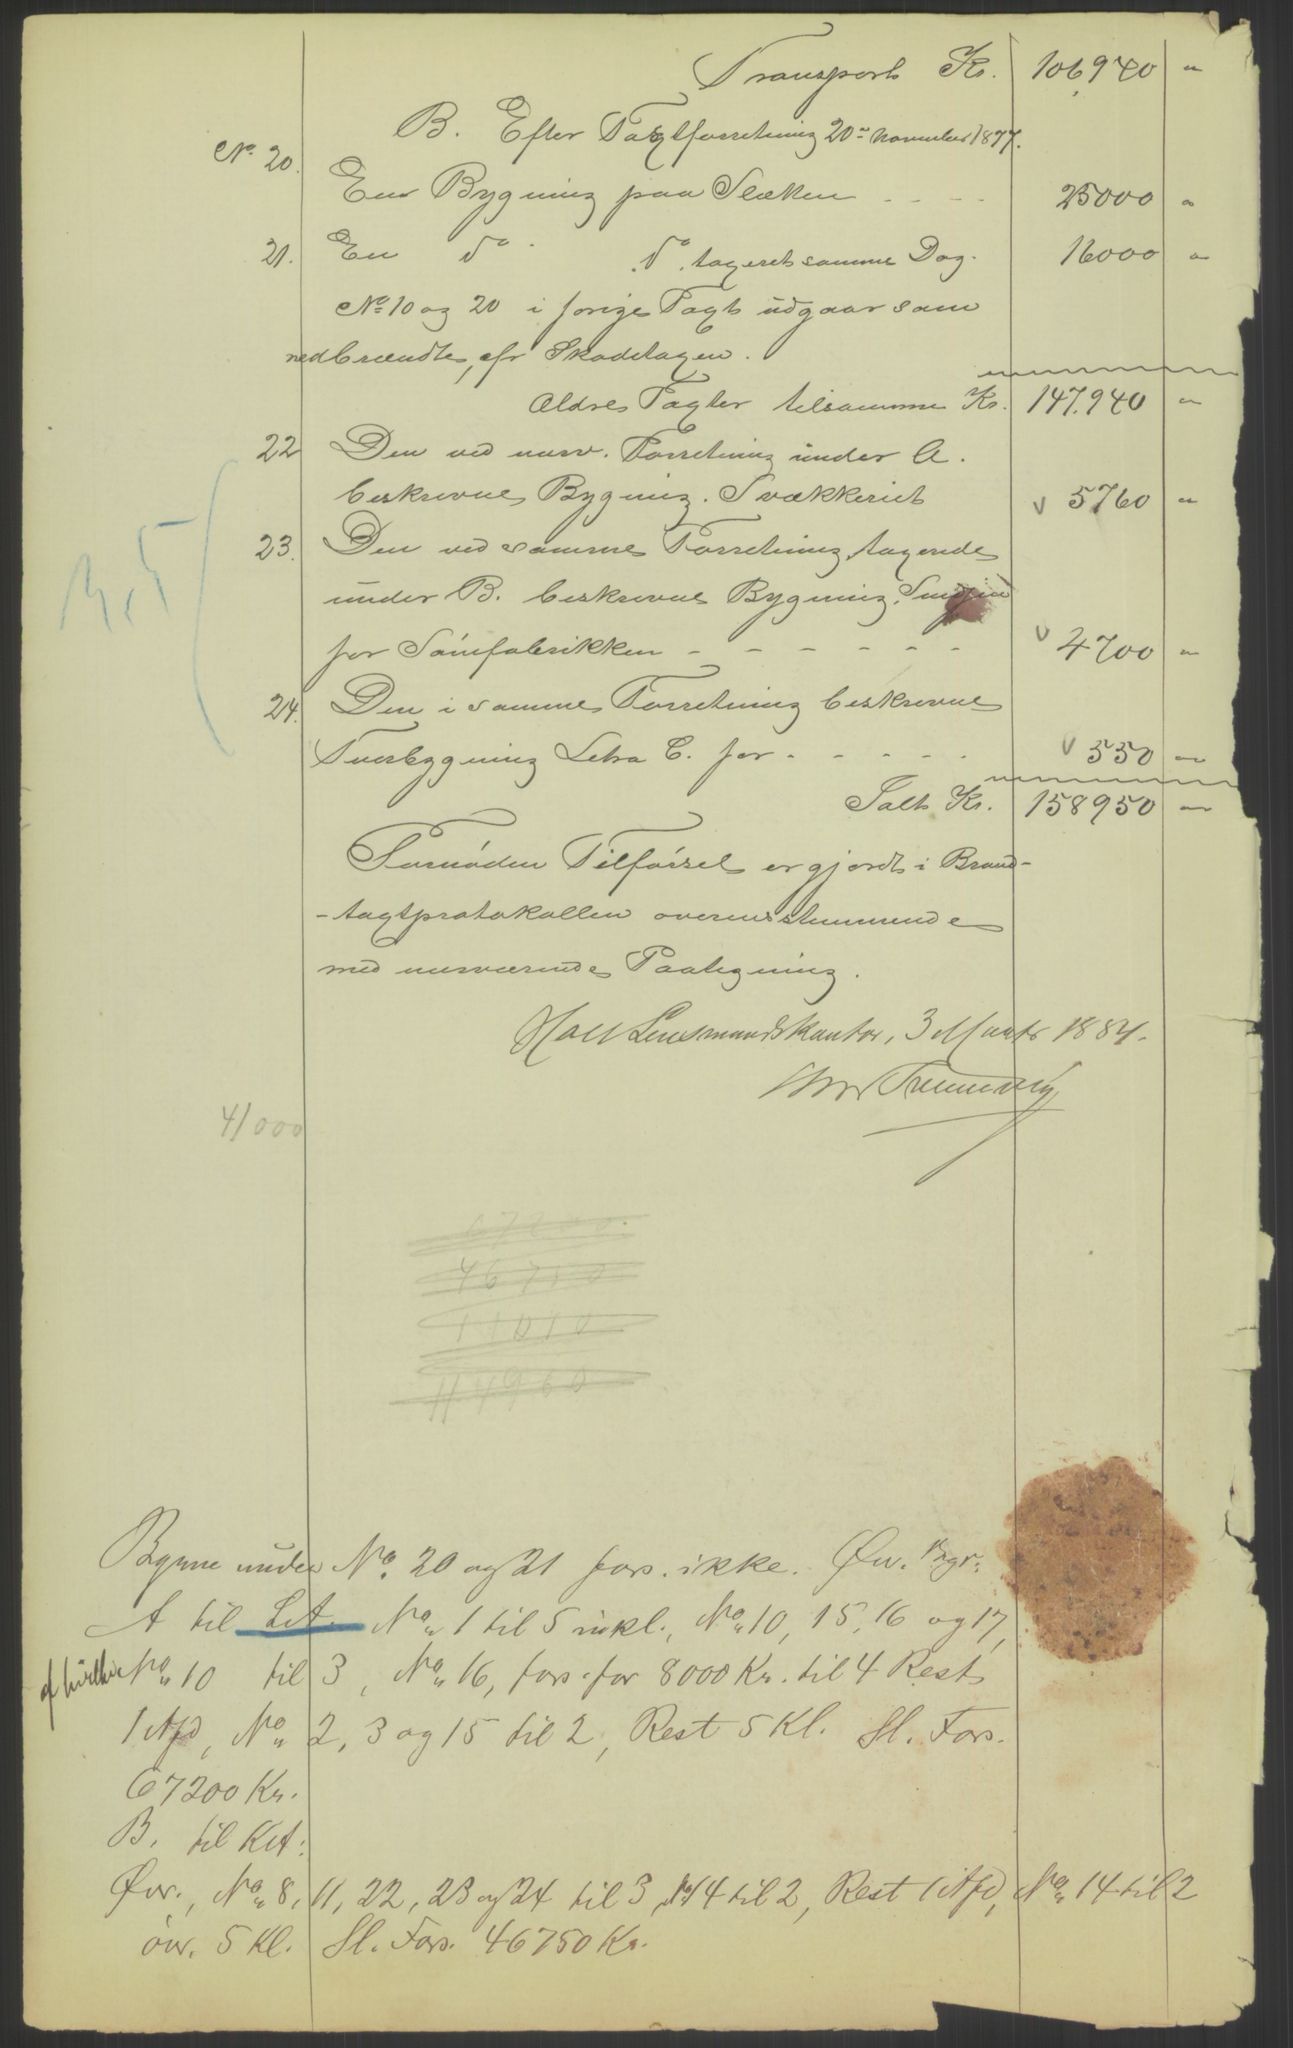 Transport Kr. 106,940 "
B. Efter Taxtforretning 20de November 1877.
No. 20. En Bygning paa Slækken - - - - 25000 "
21. En do do taxeret samme Dag. 16000 "
No 10 og 20 i forrige Taxt udgaar som
nedbrændte, cfr Skadetaxen.
Ældre Taxter tilsammen Kr. 147.940 "
22 Den ved nærv. Forretning under A.
beskrevne Bygning. Svækkeriet v 5760 "
23. Den ved samme Forretning taxerede
under B. beskrevne Bygning, Smidjen
for Sømfabrikken - - - - - - v 4700 "
24. Den i samme Forretning beskrevne
Tverbygning Letra C. for - - - - - v 550 "
Ialt Kr. 158950 "
Fornøden Tilførsel er gjordt i Brand-
-taxtprotokollen overensstemmende
med nærværende Paategning.
Lensmandskontor, 3 Marts 1884.
41000
67200.
46750
11010
114960
Bygne under No. 20 og 21 fors. ikke. Øvr. Bygr.
A til Lit. No. 1 til 5 inkl., No. 10, 15, 16 og 17,
af hvilke No. 10 til 3, No. 16, fors. for 8000 Kr. til 4 Rest
1 Afd, No. 2, 3 og 15 til 2, Rest 5 Kl. Sl. Fors.
67200 Kr.
B. til
Øvr., No. 8, 11, 22, 23 og 24 til 3, No 14 til 2, Rest 1 Afd, No. 14 til 2
øvr. 5 Kl. Sl. Fors. 46750 Kr.